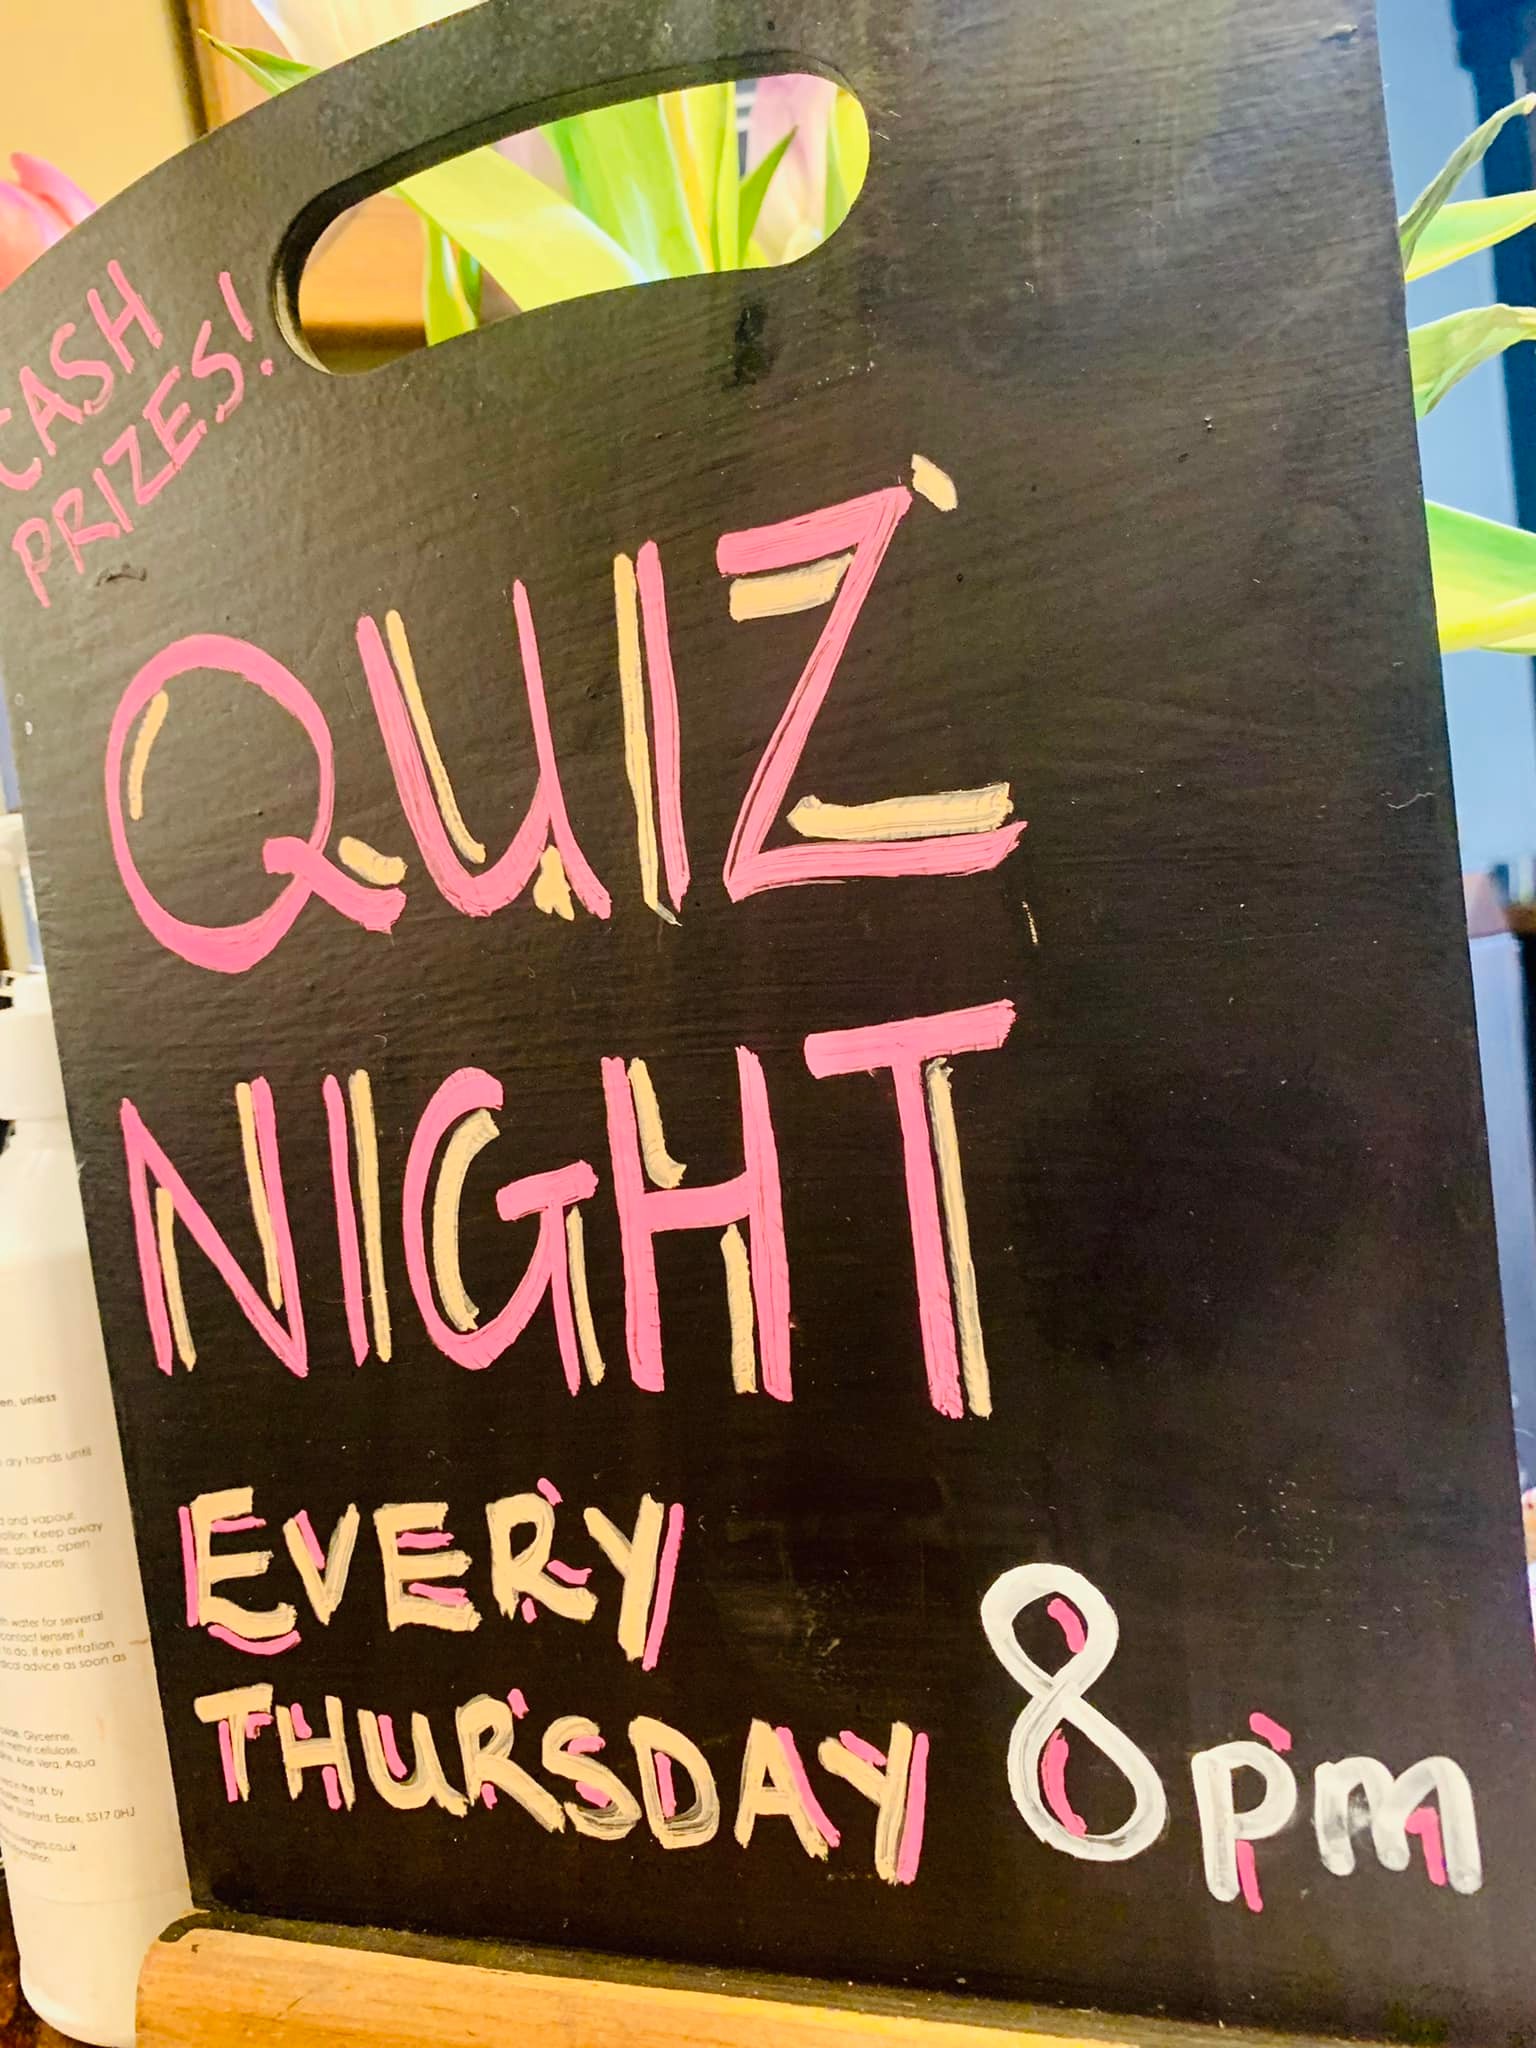 CASH
PRIZES!
QUIZ
NIGHT
EVERY
THURSDAY 8pm
en, unless
dry hands until
d and vapour.
Keep away
sparks, open
sources
water for several
contact lenses if
to do. If eye irritation
advice as soon as
Glycerine,
methyl cellulose,
Aloe Vera, Aqua
in the UK by
Ltd
Stanford, Essex, SS17 0HJ